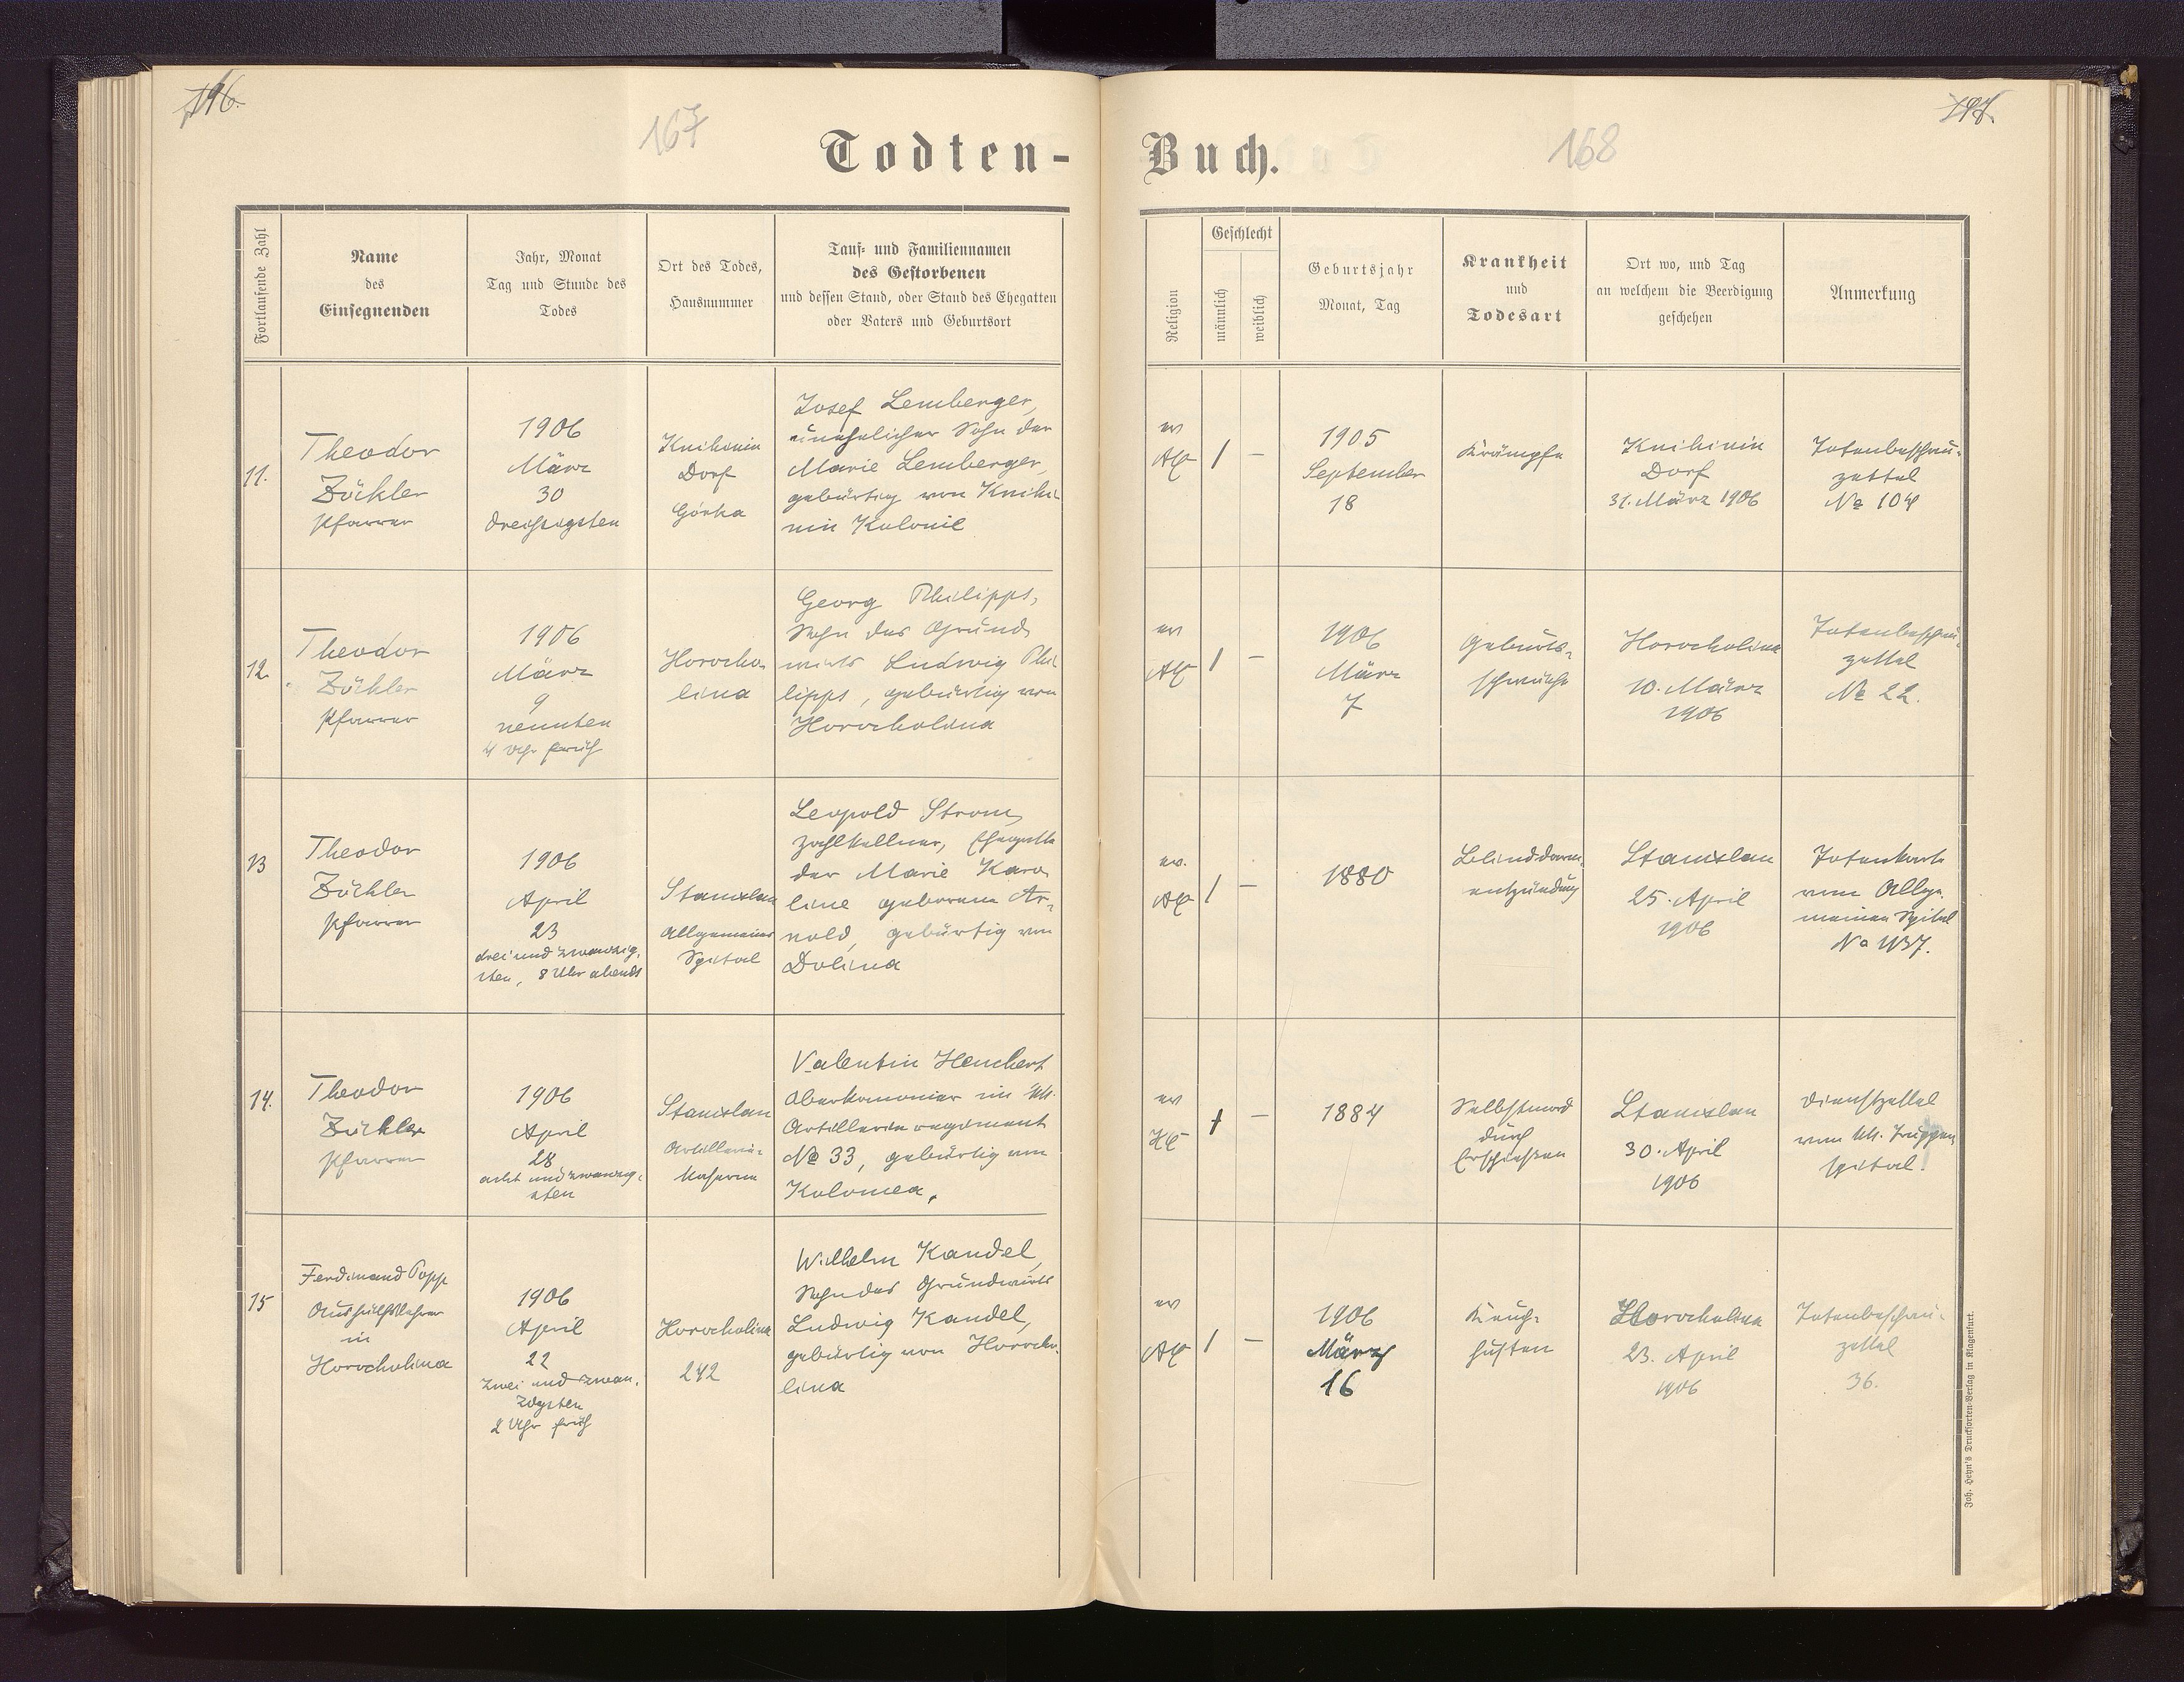 196.
167
Todten-
Fortlaufende Zahl
Name
des
Einsegnenden
Jahr, Monat
Tag und Stunde des
Todes
Ort des Todes,
Hausnummer
Tauf- und Familiennamen
des Gestorbenen
und dessen Stand, oder Stand des Ehegatten
oder Vaters und Geburtsort
11.
Theodor
Zöckler
Pfarrer
1906
März
30
dreissigsten
Knihinin
Dorf
Górka
Josef Lemberger,
unehelicher Sohn der
Marie Lemberger,
gebürtig von Knihi-
nin Kolonie
12.
Theodor
Zöckler
Pfarrer
1906
März
9
neunten
4 Uhr früh
Horocho-
lina
Georg Philipps,
Sohn des Grund-
wirts Ludwig Phi-
lipps, gebürtig von
Horocholina
13
Theodor
Zöckler
Pfarrer
1906
April
23
dreiundzwanzig-
sten, 8 Uhr abends
Stanislau
Allgemeines
Spital
Leopold Strom,
Zahlkellner, Ehegatte
der Marie Karo-
line geborene Ar-
nold, gebürtig von
Dolina
14.
Theodor
Zöckler
Pfarrer
1906
April
28
acht und zwanzig-
sten
Stanislau
Artillerie-
kaserne
Valentin Henchert
Oberkanonier im kk.
Artillerieregiment
No 33, gebürtig von
Kolomea.
15
Ferdinand Popp
Aushülfslehrer
in
Horocholina
1906
April
22
zwei und zwan-
zigsten
2 Uhr früh
Horocholina
242
Wilhelm Kandel,
Sohn des Grundwirts
Ludwig Kandel,
gebürtig von Horocho-
lina
197.
Buch.
168
Religion
Geschlecht
männlich
weiblich
Geburtsjahr
Monat, Tag
Krankheit
und
Todesart
Ort wo, und Tag
an welchem die Beerdigung
geschehen
Anmerkung
ev
AC
/
–
1905
September
18
Krämpfe
Knihinin
Dorf
31. März 1906
Totenbeschau-
zettel
No 104
ev
AC
/
–
1906
März
7
Geburts-
schwäche
Horocholina
10. März
1906
Totenbeschau-
zettel
No 22.
ev.
AC
/
–
1880
Blinddarm-
entzündung
Stanislau
25. April
1906
Totenkarte
vom Allge-
meinen Spital
No 1137.
ev
HC
–
1884
Selbstmord
durch
Erschießen
Stanislau
30. April
1906
Dienstzettel
vom kk. Truppen
spital.
ev
AC
/
–
1906
März
16
Keuch-
husten
Horocholina
23. April
1906
Totenbeschau-
zettel
36.
Joh. Heyn's Drucksorten-Verlag in Klagenfurt.